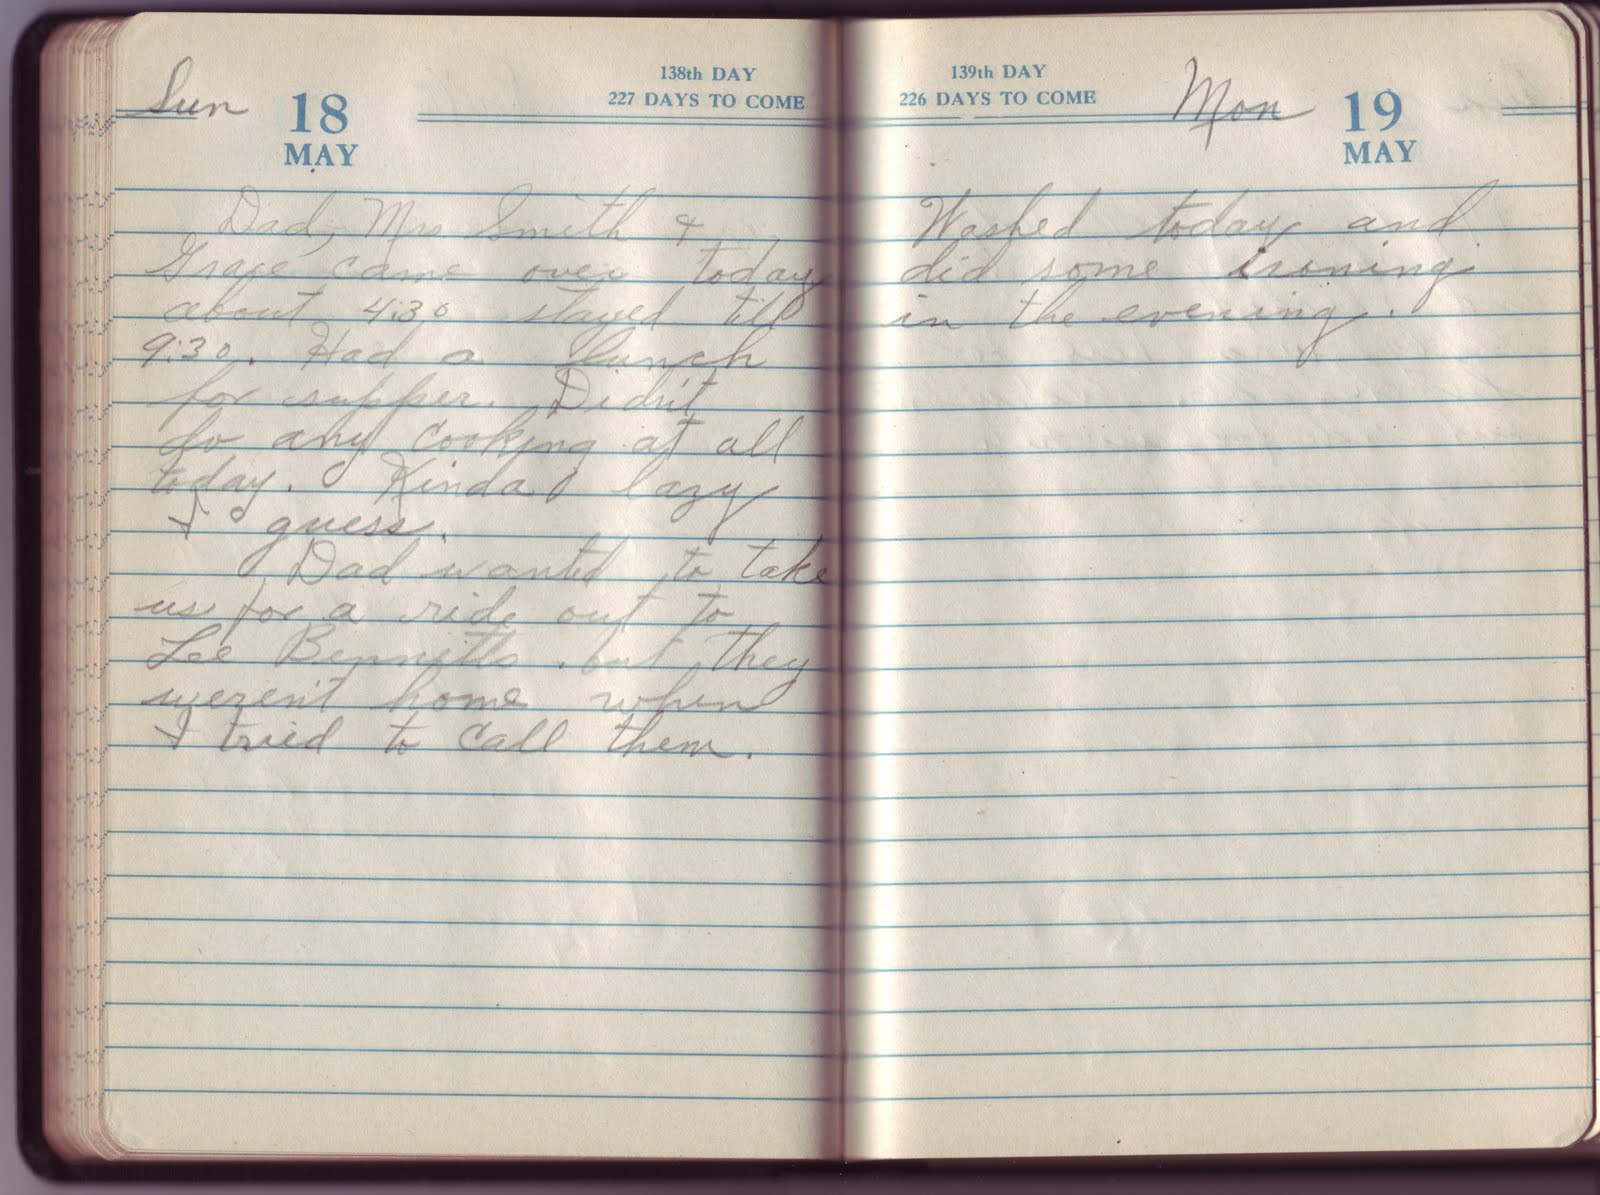 Sun 18 MAY
138th DAY
227 DAYS TO COME
Dad, Mrs Smith &
Grace came over today
about 4:30 stayed till
9:30. Had a lunch
for supper. Didn't
do any cooking at all
today. Kinda lazy
I guess.
Dad wanted to take
us for a ride out to
Lee Bennetts. but they
weren't home when
I tried to call them.
139th DAY
226 DAYS TO COME
Mon 19 MAY
Washed today and
did some ironing
in the evening.